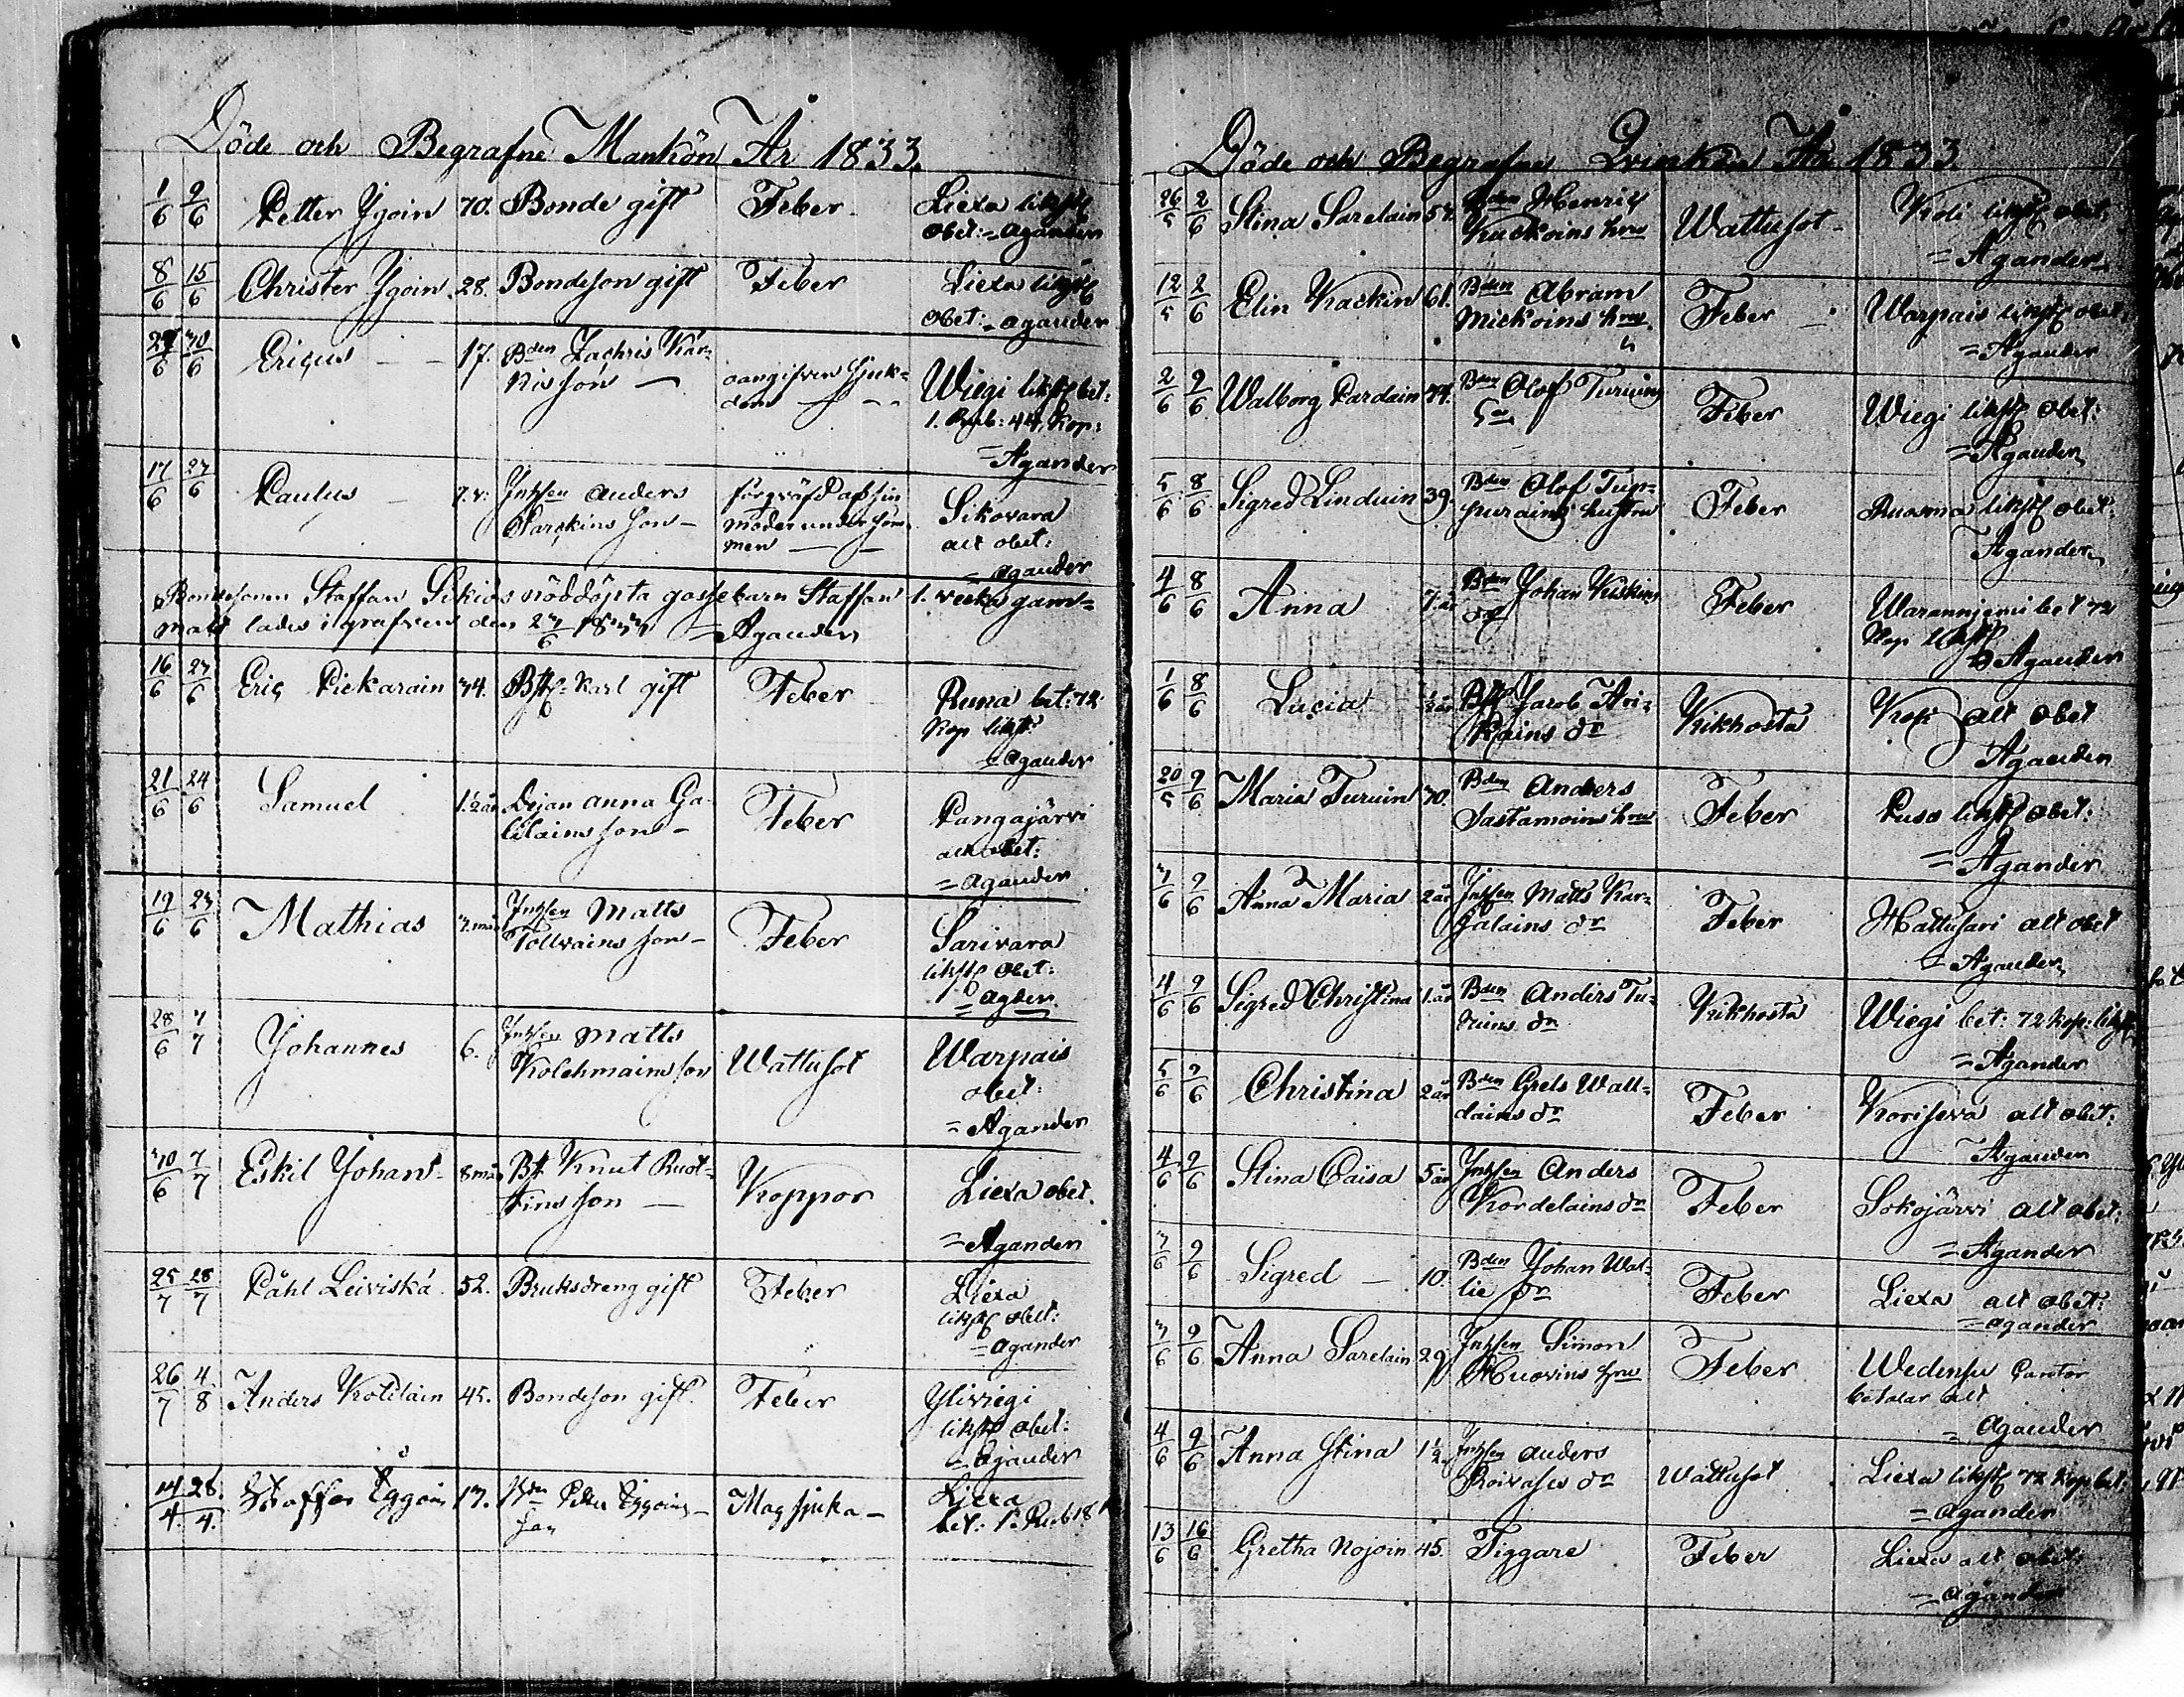 Döde och Begrafne Mankön År 1833.
1/6 9/6 Petter Ygoin 70. Bonde gift Feber Liexa likst obet: = Agander
8/6 15/6 Christer Ygoin 28. Bondeson gift Feber Liexa likst obet: = Agander
30/6 Ericus 17. Bden Zachris Kär-
kis son oangifven sjuk-
dom Wiegi likst bet:
1. Rub: 44. Kop:
= Agander
17/6 27/6 Paulus 7.v: Inhsen Anders
Parckins son förqväfd af sin
moder under söm-
men Sikovara
alt obet:
= Agander
Bondesonen Staffan Sikiös nöddöpta gossebarn Staffan 1. vecka gam-
malt lades i grafven den 27/6 1833 = Agander
16/6 27/6 Eric Pickarain 74. Bst Karl gift Feber Runa bet: 72
Kop likst:
= Agander
21/6 24/6 Samuel 1.½ år Pigan Anna Ga-
lilains son Feber Pangajärvi
alt obet:
= Agander
19/6 23/6 Mathias 3. mån Inhsen Matts
Tollvains son Feber Sarivara
likst obet:
= Agder
28/6 7/7 Johannes 6. Inhsen Matts
Kolehmains son Wattusot Warpais
obet:
= Agander
30/6 7/7 Eskil Johan 8 mån Bst Knut Ruot-
tins son Koppor Liexa obet.
= Agander
25/7 28/7 Påhl Leiviskä 52. Bruksdreng gift Feber Liexa
likst obet:
= Agander
26/7 4/8 Anders Kotilain 45. Bondeson gift. Feber Yliviegi
likst obet:
= Agander
14/4 28/4 Staffan Eggoin 13. Bden Petter Eggoins
son Magsjuka Liexa
bet: 1. Rub 18
Döde och Begrafne Qvinkön År 1833.
26/5 2/6 Stina Sarelain 57. Bden Henric
Kuckoins hru Wattusot Koli likst obet:
= Agander
12/5 2/6 Elin Kackin 61. Bden Abram
Mickoins hru Feber Warpais likst obet:
= Agander
2/6 9/6 Walborg Pardain 74. Bden Olof Turuins
Feber Wiegi likst obet:
= Agander
5/6 8/6 Sigred Linduin 39. Bden Olof Tup-
purains hustru Feber Ruosma likst obet:
Agander
4/6 8/6 Anna 7. år Bden Johan Kiiskins
dr Feber Waranniemi bet 72
Kop likst
= Agander
1/6 8/6 Lucia ½ år Bst Jacob Ari-
kains dr Kikhosta Koli alt obet
Agander
20/5 9/6 Maria Turuin 70. Bden Anders
Sastamoins hru Feber Puso likst obet:
= Agander
3/6 9/6 Anna Maria 2 år Inhsen Matts Kar-
jalains dr Feber Hattusari alt obet
= Agander
4/6 9/6 Sigred Christina 1. år Bden Anders Tu-
ruins dr Kikhosta Wiegi bet: 72 Kop: likst
= Agander
5/6 9/6 Christina 2 år Bden Grels Wall-
dains dr Feber Koriseva alt obet:
Agander
4/6 9/6 Stina Caisa 5 år Inhsen Anders
Kordelains dr Feber Sokojärvi alt obet:
= Agander
3/6 9/6 Sigred 10. Bden Johan Wal-
lie dr Feber Liexa alt obet:
= Agander
3/6 9/6 Anna Sarelain 29 Inhsen Simon
Huovins hru Feber Wedensu Cantor
betalar alt
= Agander
4/6 9/6 Anna Stina 1½ Inhsen Anders
Roivases dr Wattusot Liexa likst 72 Kop bet:
= Agander
13/6 16/6 Gretha Nojoin 45. Tiggare Feber Liexa alt obet:
= Agander